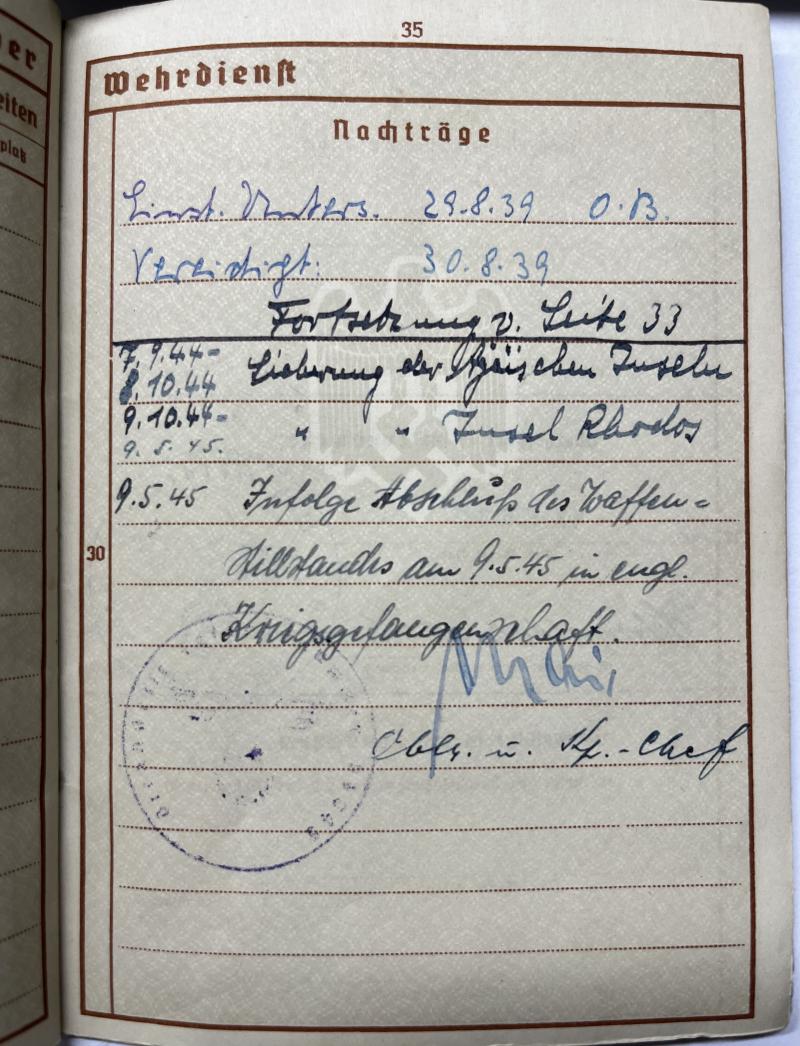 35
Wehrdienst
Nachträge
Einst. Unters. 29.8.39 O.B.
Vereidigt: 30.8.39
Fortsetzung v. Seite 33
7.9.44-
8.10.44 Sicherung der Ägäischen Inseln
9.10.44-
9.5.45. " " Insel Rhodos
9.5.45 Infolge Abschluß des Waffen=
stillstandes am 9.5.45 in engl.
30
Kriegsgefangenschaft.
Oblt. u. Kp.-Chef
er
eiten
platz